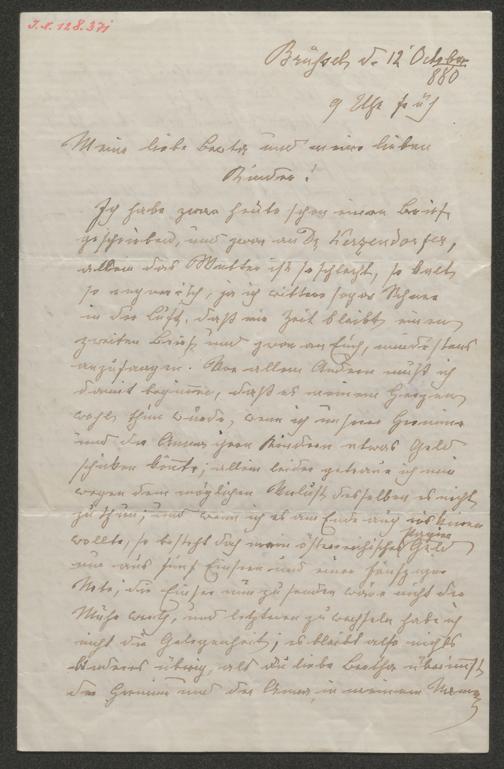 J.N. 128.371
Brüssel d. 12 October
880
9 Uhr früh
Meine liebe Bertha und meine lieben
Kinder!
Ich habe zwar heute schon einen Brief
geschrieben, und zwar an Dr
allein das Wetter ist so schlecht, so kalt,
so regnerisch, ja ich wittere sogar Schnee
in der Luft, daß mir Zeit bleibt einen
zweiten Brief und zwar an Euch, mindestens
anzufangen. Vor allem Andern muß ich
damit beginnen, daß es meinem Herzen
wohl thun würde, wenn ich unserer Hermine
und der Anna ihren Kindern etwas Geld
schicken könnte; allein leider getraue ich mir
wegen dem möglichen Verlust desselben es nicht
zu thun; und wenn ich es am Ende auch riskiren
wollte, so besteht doch mein österreichisches Papier
Geld
nur aus fünf Einsern und einer Fünfziger
Note; die Einser nun zu senden wäre nicht der
Mühe werth, und letzteren zu wechseln habe ich
nicht die Gelegenheit; es bleibt also nichts
Anderes übrig, als du liebe Bertha übernimmst
der Hermine und der Anna, in meinem Namen